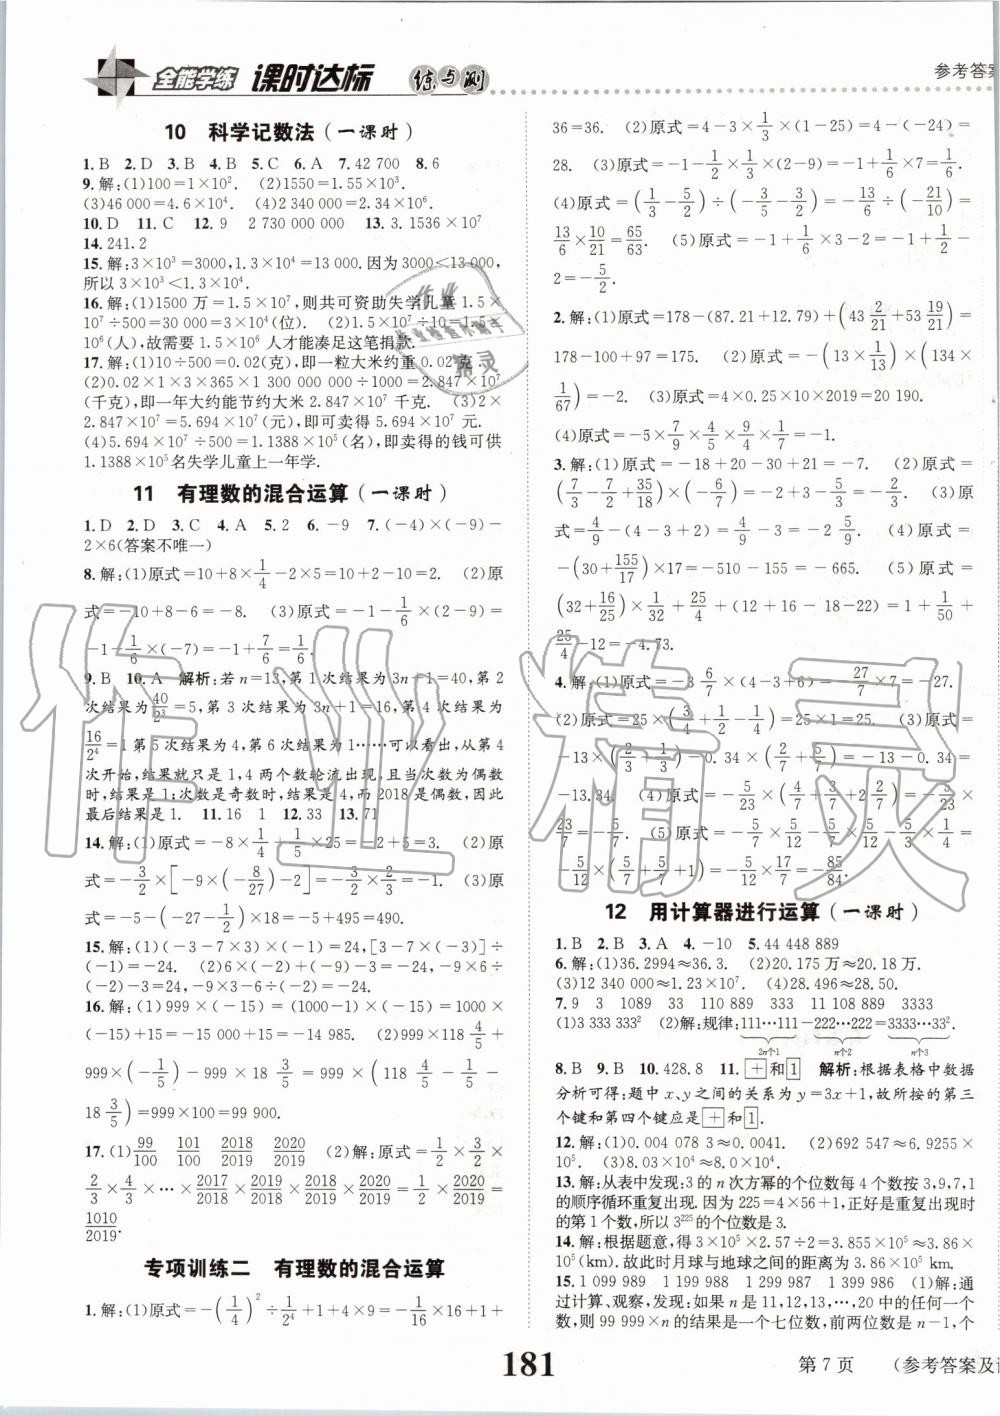 全能学练 课时达标 练与测
参考答案
10 科学记数法(一课时)
1. B 2. D 3. B 4. B 5. C 6. A 7. 42 700 8. 6
9. 解:(1)100=1×10². (2)1550=1.55×10³.
(3)46 000=4.6×10⁴. (4)2 340 000=2.34×10⁶.
10. D 11. C 12. 9 2 730 000 000 13. 3.1536×10⁷
14. 241.2
15. 解:3×10³=3000,1.3×10⁴=13 000. 因为 3000<13 000,
所以 3×10³<1.3×10⁴.
16. 解:(1)1500 万=1.5×10⁷,则共可资助失学儿童 1.5×
10⁷÷500=30 000=3×10⁴(位). (2)1.5×10⁷÷10=1.5×
10⁶(人),故需要 1.5×10⁶ 人才能凑足这笔捐款.
17. 解:(1)10÷500=0.02(克),即一粒大米约重 0.02 克.
(2)0.02×1×3×365×1 300 000 000÷1000=2.847×10⁷
(千克),即一年大约能节约大米 2.847×10⁷ 千克. (3)2×
2.847×10⁷=5.694×10⁷(元),即可卖得 5.694×10⁷ 元.
(4)5.694×10⁷÷500=1.1388×10⁵(名),即卖得的钱可供
1.1388×10⁵名失学儿童上一年学.
11 有理数的混合运算(一课时)
1. D 2. D 3. C 4. A 5. 2 6. −9 7. (−4)×(−9)−
2×6(答案不唯一)
8. 解:(1)原式=10+8×1/4−2×5=10+2−10=2. (2)原
式=−10+8−6=−8. (3)原式=−1−1/6×(2−9)=
−1−1/6×(−7)=−1+7/6=1/6.
9. B 10. A 解析:若 n=13,第 1 次结果为3n+1=40,第 2
次结果为40/2³=5,第 3 次结果为 3n+1=16,第 4 次结果为
16/2⁴=1 第 5 次结果为 4,第 6 次结果为 1……可以看出,从第 4
次开始,结果就只是 1,4 两个数轮流出现,且当次数为偶数
时,结果是 1;次数是奇数时,结果是 4,而 2018 是偶数,因此
最后结果是 1. 11. 16 1 12. 33 13. 71
14. 解:(1)原式=−8×1/4+1/5×25=−2+5=3. (2)原
式=−3/2×[−9×(−8/27)−2]=−3/2×2/3=−1. (3)原
式=−5−(−27−1/2)×18=−5+495=490.
15. 解:(1)(−3−7×3)×(−1)=24,[3−7×(−3)]÷
(−1)=−24. (2)6×(−2)+(−9)−3=−24,(−9)÷
(−2)−3=−24,−9×3−6÷(−2)=−24.
16. 解:(1)999×(−15)=(1000−1)×(−15)=1000×
(−15)+15=−15 000+15=−14 985. (2)999×118 4/5+
999×(−1/5)−999×18 3/5=999×(118 4/5−1/5−
18 3/5)=999×100=99 900.
17. (1)99/100 101/100 2018/2019 2020/2019 (2)解:原式=1/2×3/2×
2/3×4/3×…×2017/2018×2019/2018×2018/2019×2020/2019=1/2×2020/2019=
1010/2019.
专项训练二 有理数的混合运算
1. 解:(1)原式=−(1/4)²÷1/2⁴+1+4×9=−1/16×16+1+
36=36. (2)原式=4−3×1/3×(1−25)=4−(−24)=
28. (3)原式=−1−1/2×1/3×(2−9)=−1+1/6×7=1/6.
(4)原式=(1/3−5/2)÷(−3/5−3/2)=−13/6÷(−21/10)=
13/6×10/21=65/63. (5)原式=−1+1/6×3−2=−1+1/2−
2=−5/2.
2. 解:(1)原式=178−(87.21+12.79)+(43 2/21+53 19/21)=
178−100+97=175. (2)原式=−(13×1/13)×(134×
1/67)=−2. (3)原式=4×0.25×10×2019=20 190.
(4)原式=−5×7/9×4/5×9/4×1/7=−1.
3. 解:(1)原式=−18+20−30+21=−7. (2)原式=
(7/3−7/2+35/18)×(−6/7)=−2+3−5/3=−2/3. (3)原
式=4/9−(4−3+2)=4/9−3=−2 5/9. (4)原式=
−(30+155/17)×17=−510−155=−665. (5)原式=
(32+16/25)×1/32+25/4+(12+16−18−22)=1+1/50+
25/4−12=−4.73.
4. 解:(1)原式=−3 6/7×(4−3+6)=−27/7×7=−27.
(2)原式=25×(3/4+1/2−1/4)=25×1=25. (3)原式=
−13×(2/3+1/3)−0.34×(2/7+5/7)=−13−0.34=
−13.34. (4)原式=−5/23×(4/7+3/7+2 2/7)=−5/23×
23/7=−5/7. (5)原式=−5/7×5/12−5/7×(5/12+1)=
−5/12×(5/7+5/7+1)=−5/12×17/7=−85/84.
12 用计算器进行运算(一课时)
1. B 2. B 3. A 4. −10 5. 44 448 889
6. 解:(1)36.2994≈36.3. (2)20.175万≈20.18万.
(3)12 340 000≈1.23×10⁷. (4)28.496≈28.50.
7. 9 3 1089 33 110 889 333 11 108 889 3333
(1)3 333 333² (2)解:规律:111…111−222…222=3333…33².
2n个1 n个2 n个3
8. B 9. B 10. 428.8 11. +和1 解析:根据表格中数据
分析可得:题中 x、y之间的关系为 y=3x+1,故所按的第三
个键和第四个键应是+和1.
12. 解:(1)0.004 078 3≈0.0041. (2)692 547≈6.9255×
10⁵. (3)8.03×10⁴≈8.0×10⁴.
13. 解:从表中发现:3 的 n 次方幂的个位数每 4 个数按 3,9,7,1
的顺序循环重复出现. 因为 225=4×56+1,正好是重复出现
的第 1 个数,所以 3²²⁵的个位数是 3.
14. 解:根据题意,得 3×10⁵×2.57÷2=3.855×10⁵≈3.86×
10⁵(km). 故此时月球与地球之间的距离为 3.86×10⁵ km.
15. 1 099 989 1 199 988 1 299 987 1 399 986 (1)解:通
过计算、观察,发现:如果 n 是 11,12,13,…,20 中的任何一个
数,则 99 999×n 的结果是一个七位数,前两位数是 n−1,个
181
第 7 页 (参考答案及
作业精灵
作业
作业检查小助手
精灵